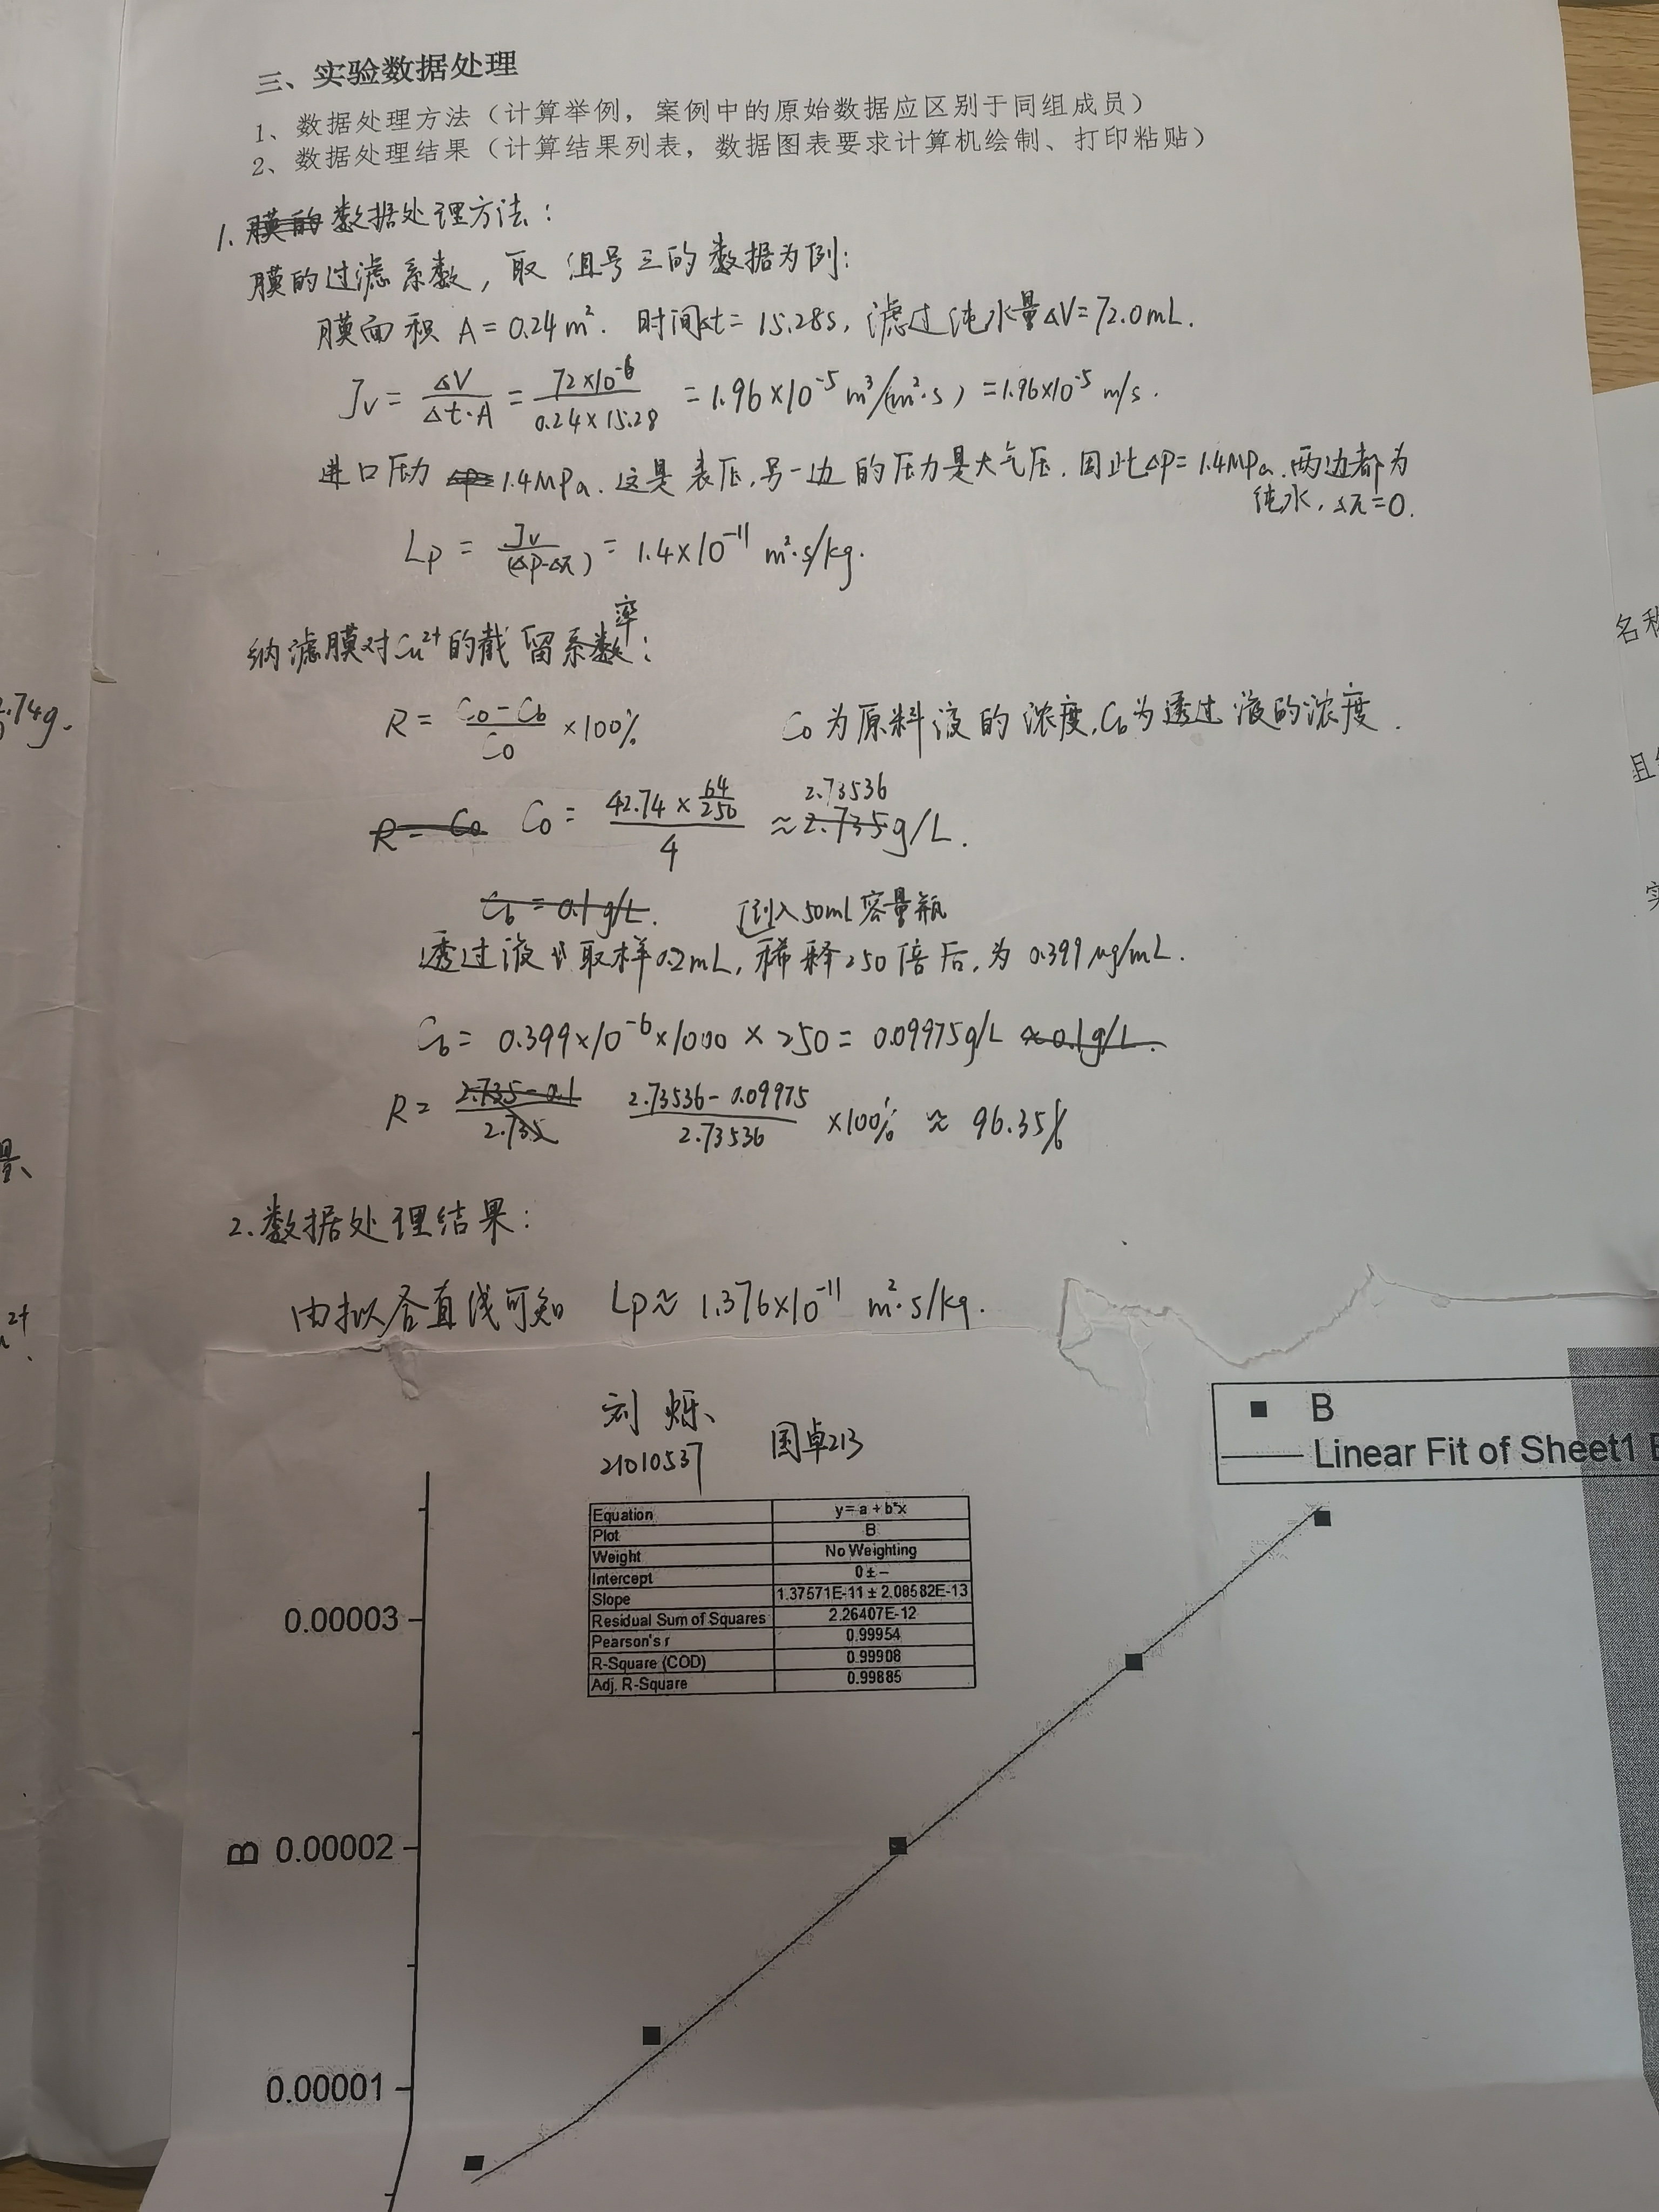 三、实验数据处理
1、数据处理方法（计算举例，案例中的原始数据应区别于同组成员）
2、数据处理结果（计算结果列表，数据图表要求计算机绘制、打印粘贴）
1. 数据处理方法：
膜的过滤系数，取组号三的数据为例：
膜面积 A=0.24m². 时间Δt=15.28s, 滤过纯水量ΔV=72.0mL.
Jv = ΔV/(Δt·A) = 72×10⁻⁶/(0.24×15.28) = 1.96×10⁻⁵ m³/(m²·s) = 1.96×10⁻⁵ m/s.
进口压力 1.4MPa. 这是表压, 另一边的压力是大气压. 因此ΔP=1.4MPa. 两边都为
纯水, Δπ=0.
Lp = Jv/(ΔP-Δπ) = 1.4×10⁻¹¹ m²·s/kg.
纳滤膜对Cu²⁺的截留率:
R = (C₀-Cb)/C₀ ×100% C₀为原料液的浓度, Cb为透过液的浓度.
2.74g.
C₀ = (42.74×64/250)/4 ≈ 2.73536 g/L.
倒入50ml容量瓶
透过液中取样0.2mL, 稀释250倍后, 为 0.399μg/mL.
Cb = 0.399×10⁻⁶×1000×250 = 0.09975g/L
R = (2.73536-0.09975)/2.73536 ×100% ≈ 96.35%
2.数据处理结果:
由拟合直线可知 Lp≈1.376×10⁻¹¹ m²·s/kg.
刘烁
21010537 国卓213
B
Linear Fit of Sheet1
Equation y = a + b*x
Plot B
Weight No Weighting
Intercept 0 ± --
Slope 1.37571E-11 ± 2.08582E-13
Residual Sum of Squares 2.26407E-12
Pearson's r 0.99954
R-Square (COD) 0.99908
Adj. R-Square 0.99885
0.00003
B 0.00002
0.00001